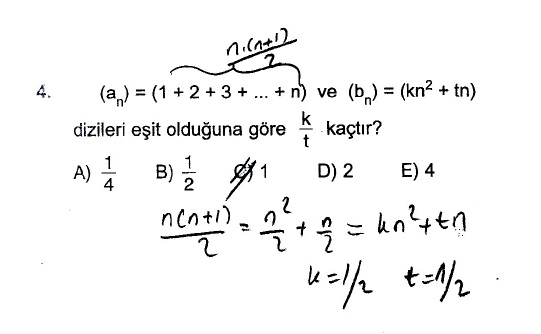 n.(n+1)
2
4. (aₙ) = (1 + 2 + 3 + ... + n) ve (bₙ) = (kn² + tn)
dizileri eşit olduğuna göre k/t kaçtır?
A) 1/4 B) 1/2 C) 1 D) 2 E) 4
n(n+1)/2 = n²/2 + n/2 = kn²+tn
k=1/2 t=1/2